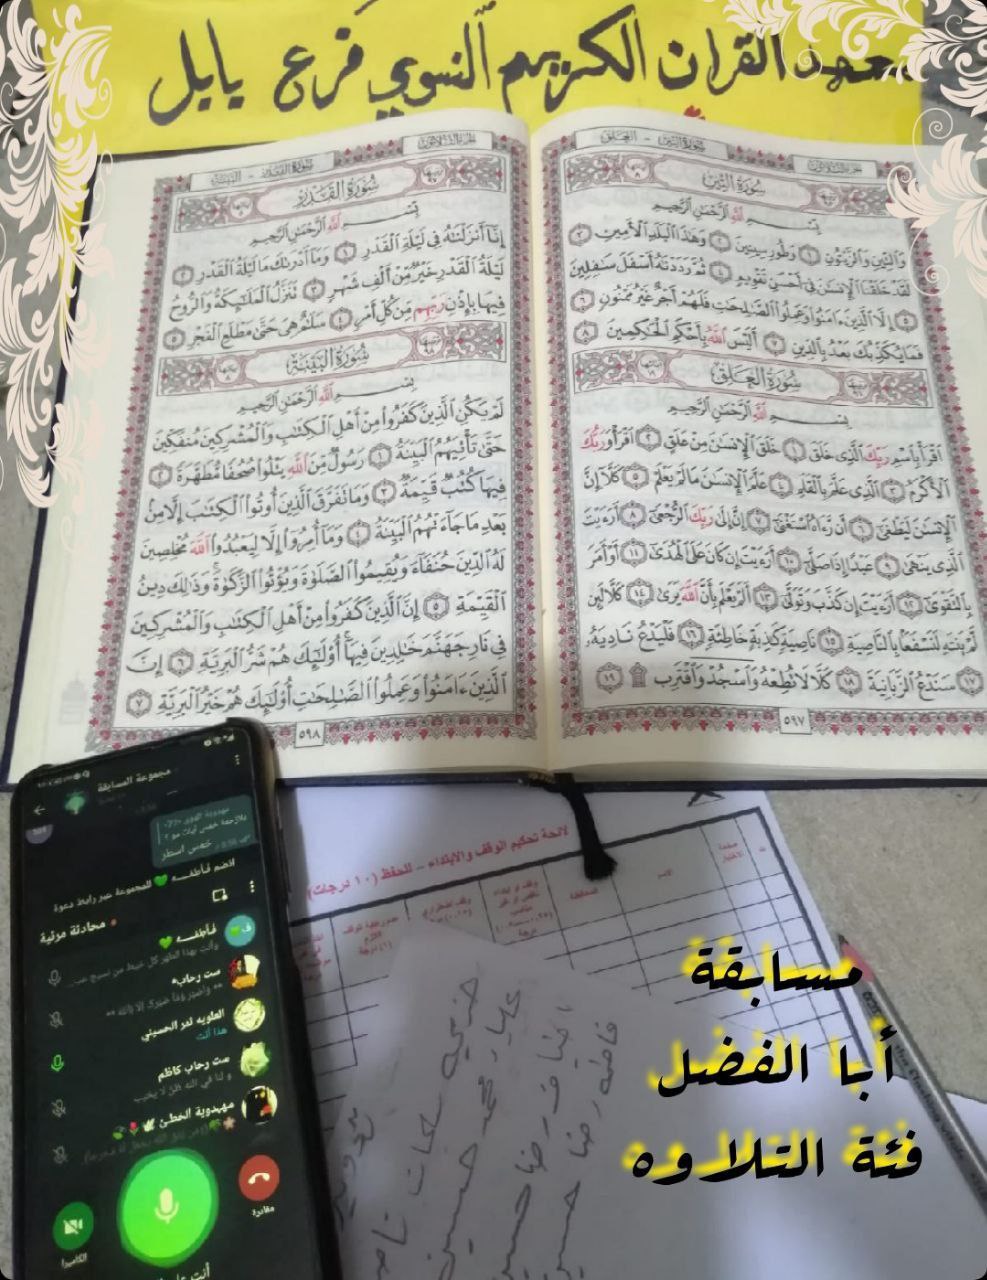 معهد القرآن الكريم النسوي فرع بابل
سورة التين - العلق
الجزء الثلاثون
سورة التين
بسم الله الرحمن الرحيم
وَالتِّينِ وَالزَّيْتُونِ ١ وَطُورِ سِينِينَ ٢ وَهَٰذَا الْبَلَدِ الْأَمِينِ ٣
لَقَدْ خَلَقْنَا الْإِنسَٰنَ فِي أَحْسَنِ تَقْوِيمٍ ٤ ثُمَّ رَدَدْنَٰهُ أَسْفَلَ سَٰفِلِينَ
٥ إِلَّا الَّذِينَ ءَامَنُوا وَعَمِلُوا الصَّٰلِحَٰتِ فَلَهُمْ أَجْرٌ غَيْرُ مَمْنُونٍ ٦
فَمَا يُكَذِّبُكَ بَعْدُ بِالدِّينِ ٧ أَلَيْسَ اللَّهُ بِأَحْكَمِ الْحَٰكِمِينَ ٨
سورة العلق
بسم الله الرحمن الرحيم
اقْرَأْ بِاسْمِ رَبِّكَ الَّذِي خَلَقَ ١ خَلَقَ الْإِنسَٰنَ مِنْ عَلَقٍ ٢ اقْرَأْ وَرَبُّكَ
الْأَكْرَمُ ٣ الَّذِي عَلَّمَ بِالْقَلَمِ ٤ عَلَّمَ الْإِنسَٰنَ مَا لَمْ يَعْلَمْ ٥ كَلَّا إِنَّ
الْإِنسَٰنَ لَيَطْغَىٰ ٦ أَن رَّءَاهُ اسْتَغْنَىٰ ٧ إِنَّ إِلَىٰ رَبِّكَ الرُّجْعَىٰ ٨ أَرَءَيْتَ
الَّذِي يَنْهَىٰ ٩ عَبْدًا إِذَا صَلَّىٰ ١٠ أَرَءَيْتَ إِن كَانَ عَلَى الْهُدَىٰ ١١ أَوْ أَمَرَ
بِالتَّقْوَىٰ ١٢ أَرَءَيْتَ إِن كَذَّبَ وَتَوَلَّىٰ ١٣ أَلَمْ يَعْلَم بِأَنَّ اللَّهَ يَرَىٰ ١٤ كَلَّا لَئِن
لَّمْ يَنتَهِ لَنَسْفَعًا بِالنَّاصِيَةِ ١٥ نَاصِيَةٍ كَٰذِبَةٍ خَاطِئَةٍ ١٦ فَلْيَدْعُ نَادِيَهُ
١٧ سَنَدْعُ الزَّبَانِيَةَ ١٨ كَلَّا لَا تُطِعْهُ وَاسْجُدْ وَاقْتَرِب ۩ ١٩
٥٩٧
الجزء الثلاثون
سورة القدر - البينة
سورة القدر
بسم الله الرحمن الرحيم
إِنَّا أَنزَلْنَٰهُ فِي لَيْلَةِ الْقَدْرِ ١ وَمَا أَدْرَىٰكَ مَا لَيْلَةُ الْقَدْرِ ٢
لَيْلَةُ الْقَدْرِ خَيْرٌ مِّنْ أَلْفِ شَهْرٍ ٣ تَنَزَّلُ الْمَلَٰئِكَةُ وَالرُّوحُ
فِيهَا بِإِذْنِ رَبِّهِم مِّن كُلِّ أَمْرٍ ٤ سَلَٰمٌ هِيَ حَتَّىٰ مَطْلَعِ الْفَجْرِ ٥
سورة البينة
بسم الله الرحمن الرحيم
لَمْ يَكُنِ الَّذِينَ كَفَرُوا مِنْ أَهْلِ الْكِتَٰبِ وَالْمُشْرِكِينَ مُنفَكِّينَ
حَتَّىٰ تَأْتِيَهُمُ الْبَيِّنَةُ ١ رَسُولٌ مِّنَ اللَّهِ يَتْلُوا صُحُفًا مُّطَهَّرَةً ٢
فِيهَا كُتُبٌ قَيِّمَةٌ ٣ وَمَا تَفَرَّقَ الَّذِينَ أُوتُوا الْكِتَٰبَ إِلَّا مِن
بَعْدِ مَا جَاءَتْهُمُ الْبَيِّنَةُ ٤ وَمَا أُمِرُوا إِلَّا لِيَعْبُدُوا اللَّهَ مُخْلِصِينَ
لَهُ الدِّينَ حُنَفَاءَ وَيُقِيمُوا الصَّلَوٰةَ وَيُؤْتُوا الزَّكَوٰةَ وَذَٰلِكَ دِينُ
الْقَيِّمَةِ ٥ إِنَّ الَّذِينَ كَفَرُوا مِنْ أَهْلِ الْكِتَٰبِ وَالْمُشْرِكِينَ
فِي نَارِ جَهَنَّمَ خَٰلِدِينَ فِيهَا أُولَٰئِكَ هُمْ شَرُّ الْبَرِيَّةِ ٦ إِنَّ
الَّذِينَ ءَامَنُوا وَعَمِلُوا الصَّٰلِحَٰتِ أُولَٰئِكَ هُمْ خَيْرُ الْبَرِيَّةِ ٧
٥٩٨
مجموعة المسابقة
خمس اسطر
انضم فـأطمـــه 💚 للمجموعة عبر رابط دعوة
محادثة مرئية
فـأطمـــه 💚
ست رحاب
العلويه ندر الحسيني
هذا أنت
ست رحاب كاظم
و لنا في الله ظن لا يخيب
مهدوية الخطى
الكاميرا
مغادرة
لائحة تحكيم الوقف والابتداء - الحفظ (١٠ درجات)
مسابقة
أبا الفضل
فئة التلاوه